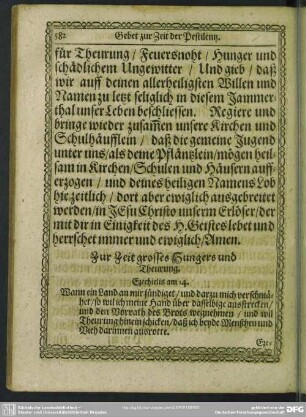 582 Gebet zur Zeit der Pestilentz.
für Theurung / Feuersnoht / Hunger und
schädlichem Ungewitter / Und gieb / daß
wir auff deinen allerheiligsten Willen und
Namen zu letzt seliglich in diesem Jammer-
thal unser Leben beschliessen. Regiere und
bringe wieder zusammen unsere Kirchen und
Schulhäufflein / daß die gemeine Jugend
unter uns / als deine Pfläntzlein / mögen heil-
sam in Kirchen / Schulen und Häusern auff-
erzogen / und deines heiligen Namens Lob
hie zeitlich / dort aber ewiglich ausgebreitet
werden / in JEsu Christo unserm Erlöser / der
mit dir in Einigkeit des H. Geistes lebet und
herrschet immer und ewiglich / Amen.
Zur Zeit grosses Hungers und
Theurung.
Ezechielis am 14.
Wann ein Land an mir sündiget / und darzu mich verschmä-
het / so wil ich meine Hand über dasselbige ausstrecken /
und den Vorrath des Brots wegnehmen / und wil
Theurung hinein schicken / daß ich beyde Menschen und
Vieh darinnen ausrotte.